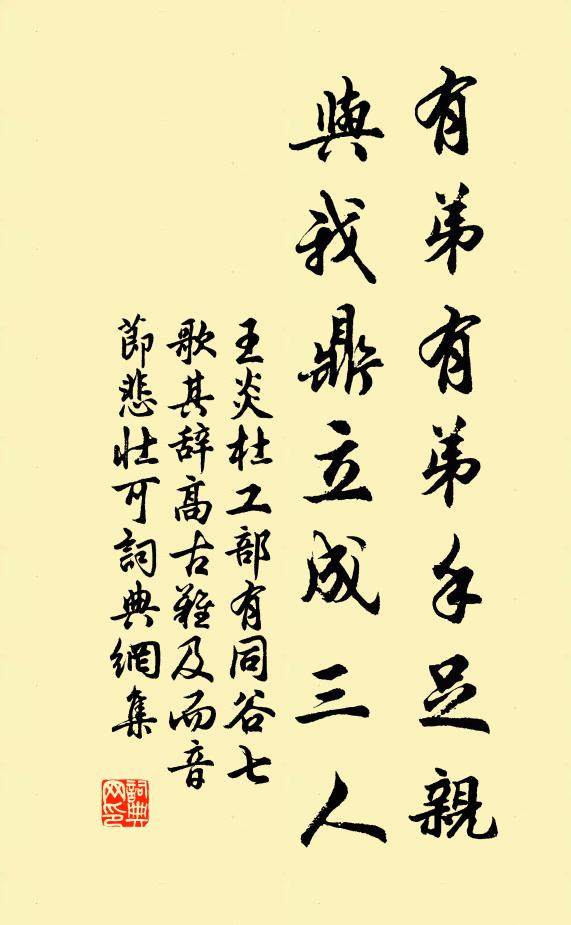 有弟有弟手足親
與我鼎立成三人
王炎杜工部有同谷七
歌其辞高古難及而音
節悲壯可詞典網集
詞典
网印